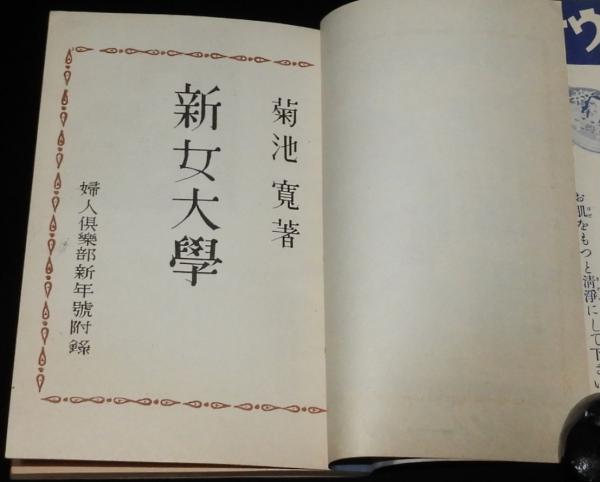 菊池寛著
新女大學
婦人倶樂部新年號附錄
お肌をもつと清淨にして下さい